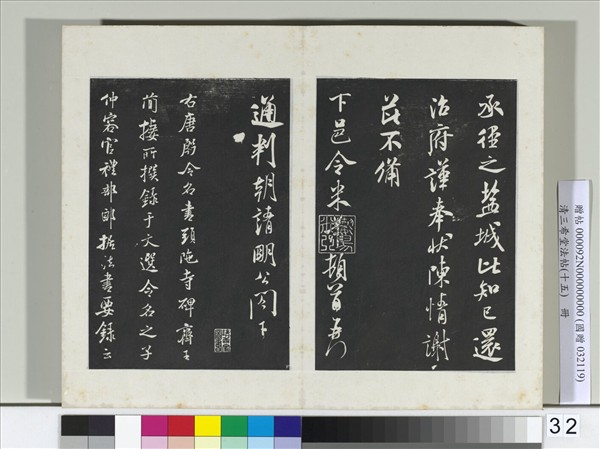 承徑之鹽城比知已還
治府謹奉狀陳情謝
茲不備
下邑令米
頓首再
通判朝請明公閤下
右唐殷令名書頭陁寺碑齊王
簡棲所撰錄于文選令名之子
仲容官禮部郎據法書要錄云
贈帖 000092N000000000 (國贈 032119)
清三希堂法帖(十五) 冊
32